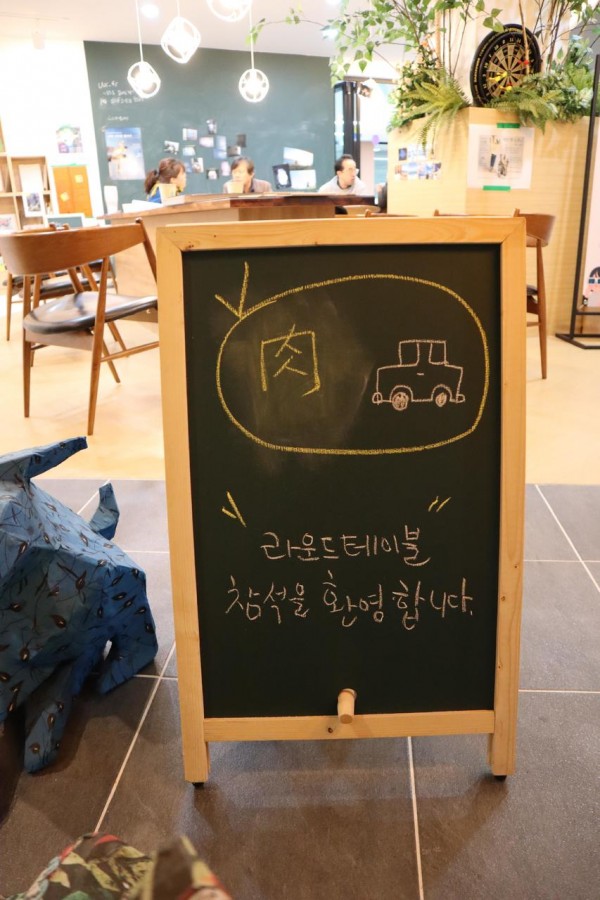 肉
라운드테이블
참석을 환영합니다.